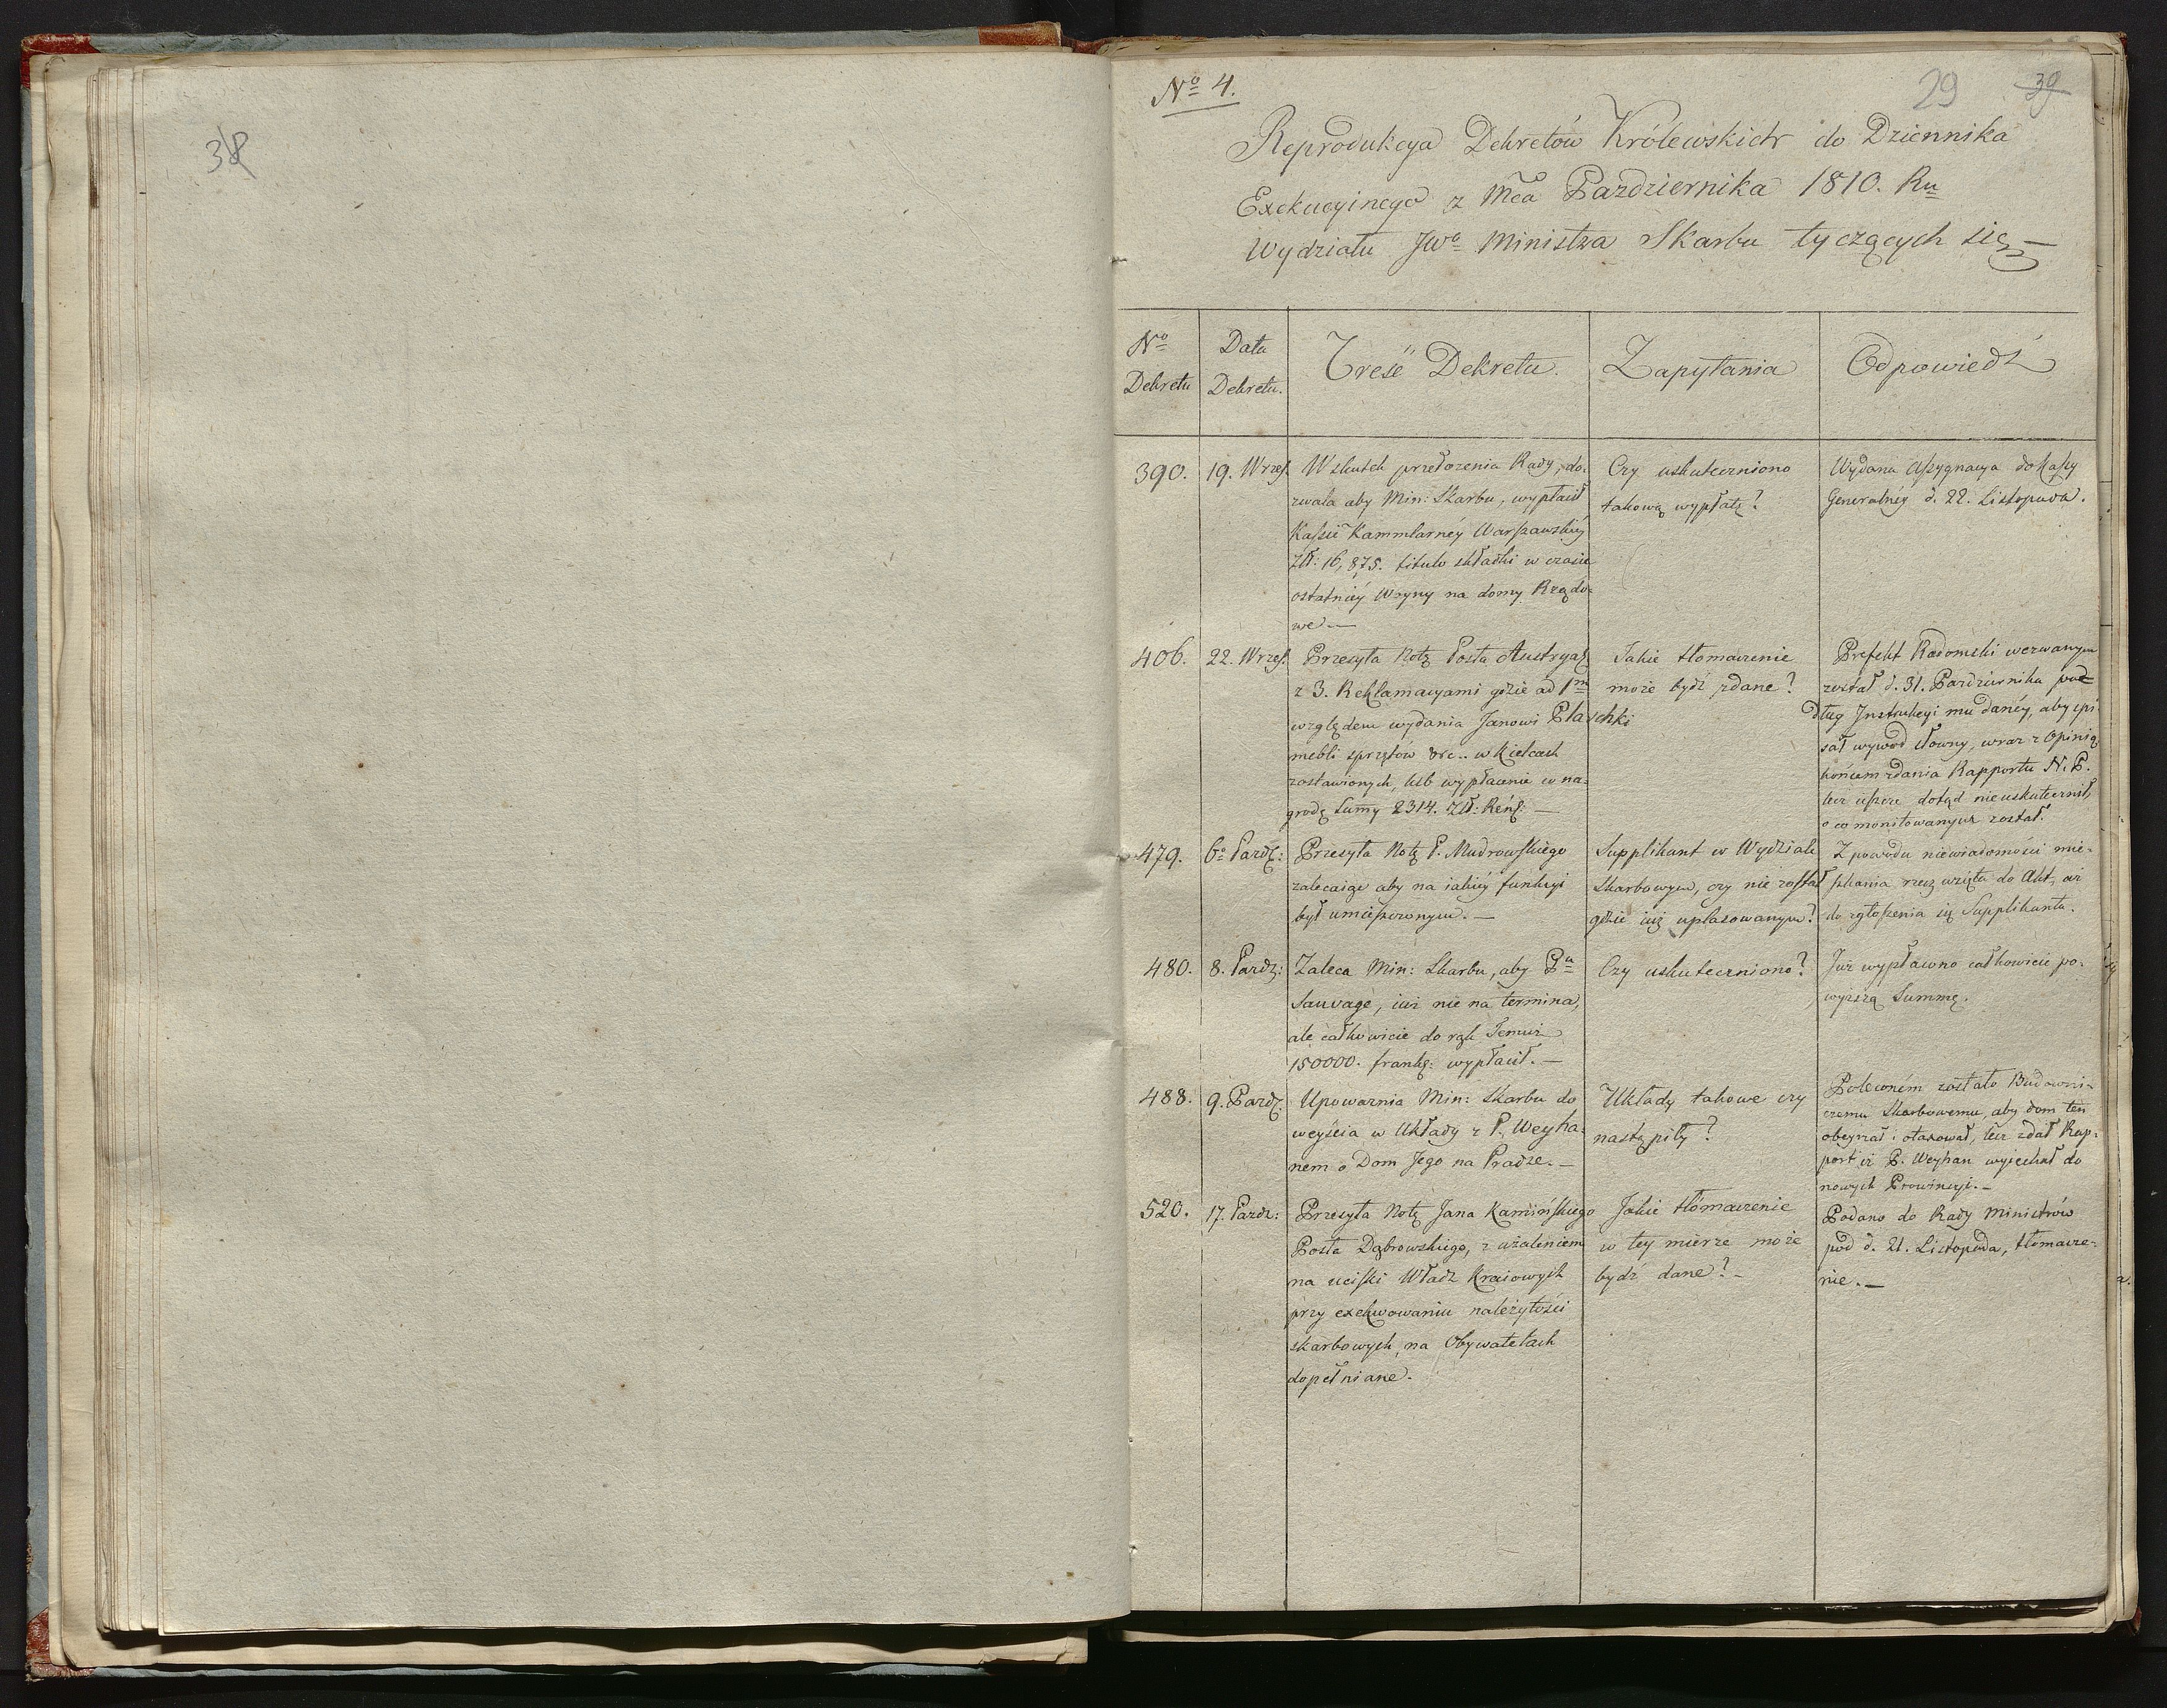 38
29
39
No 4.
Reprodukcya Dekretów Królewskich do Dziennika
Exekucyinego z Mca Pazdziernika 1810. Ru
Wydziału JWo Ministra Skarbu tyczących się —
No
Dekretu
Data
Dekretu.
Treść Dekretu.
Zapytania
Odpowiedź
390.
19. Wrześ.
Wskutek przełożenia Rady, do-
zwala aby Min: Skarbu, wypłacił
Kassie Kammlarnéy Warszawskiéy
Złł: 16,875. titulo składki w czasie
ostatniéy Woyny na domy Rządo-
we. —
Czy uskuteczniono
takową wypłatę?
Wydana Assygnacya do Kassy
Generalnéy d. 22. Listopada.
406.
22. Wrześ.
Przesyła Notę Posła Austryac.
z 3. Reklamacyami gdzie ad 1m
względem wydania Janowi Plaschki
mebli sprzętów &c.. w Kielcach
zostawionych, lub wypłacenie w na-
grodę Sumy 2314. Złł: Reńs: —
Jakie tłomaczenie
może bydź zdane?
Prefekt Radomski wezwanym
został d. 31. Pazdziernika po-
dług Instrukcyi mu danéy, aby spi-
sał wywód słowny, wraz z Opinią
końcem zdania Rapportu N. P.
lecz iescze dotąd nieuskutecznił,
o co monitowanym został.
479.
6o Pazdz:
Przesyła Notę P. Mudrowskiego
zalecaiąc aby na iakiéy funkcyi
był umiesczonym. —
Supplikant w Wydziale
Skarbowym, czy nie został
gdzie iuż uplasowanym?
Z powodu niewiadomości mie-
szkania rzecz wzięta do Akt, aż
do zgłoszenia się Supplikanta.
480.
8. Pazdz:
Zaleca Min: Skarbu, aby Pu
Sauvage, iuż nie na termina,
ale całkowicie do rąk Temuż
150000. frankz: wypłacił. —
Czy uskuteczniono?
Już wypłacono całkowicie po-
wyższą Summę.
488.
9. Pazdz:
Upoważnia Min: Skarbu do
weyścia w Układy z P. Weyha-
nem o Dom Jego na Pradze. —
Układy takowe czy
nastąpiły?
Poleconém zostało Budowni-
czemu Skarbowemu, aby dom ten
obeyrzał i otaxował, lecz zdał Rap-
port iż P. Weyhan wyiechał do
nowych Prowincyi. —
520.
17. Pazdz:
Przesyła Notę Jana Kamińskiego
Posła Dąbrowskiego, z użaleniem
na uciski Władz Kraiowych
przy exekwowaniu należytości
skarbowych, na Obywatelach
dopełniane.
Jakie tłómaczenie
w tey mierze może
bydź dane? —
Podano do Rady Ministrów
pod d. 21. Listopada, tłomacze-
nie. —